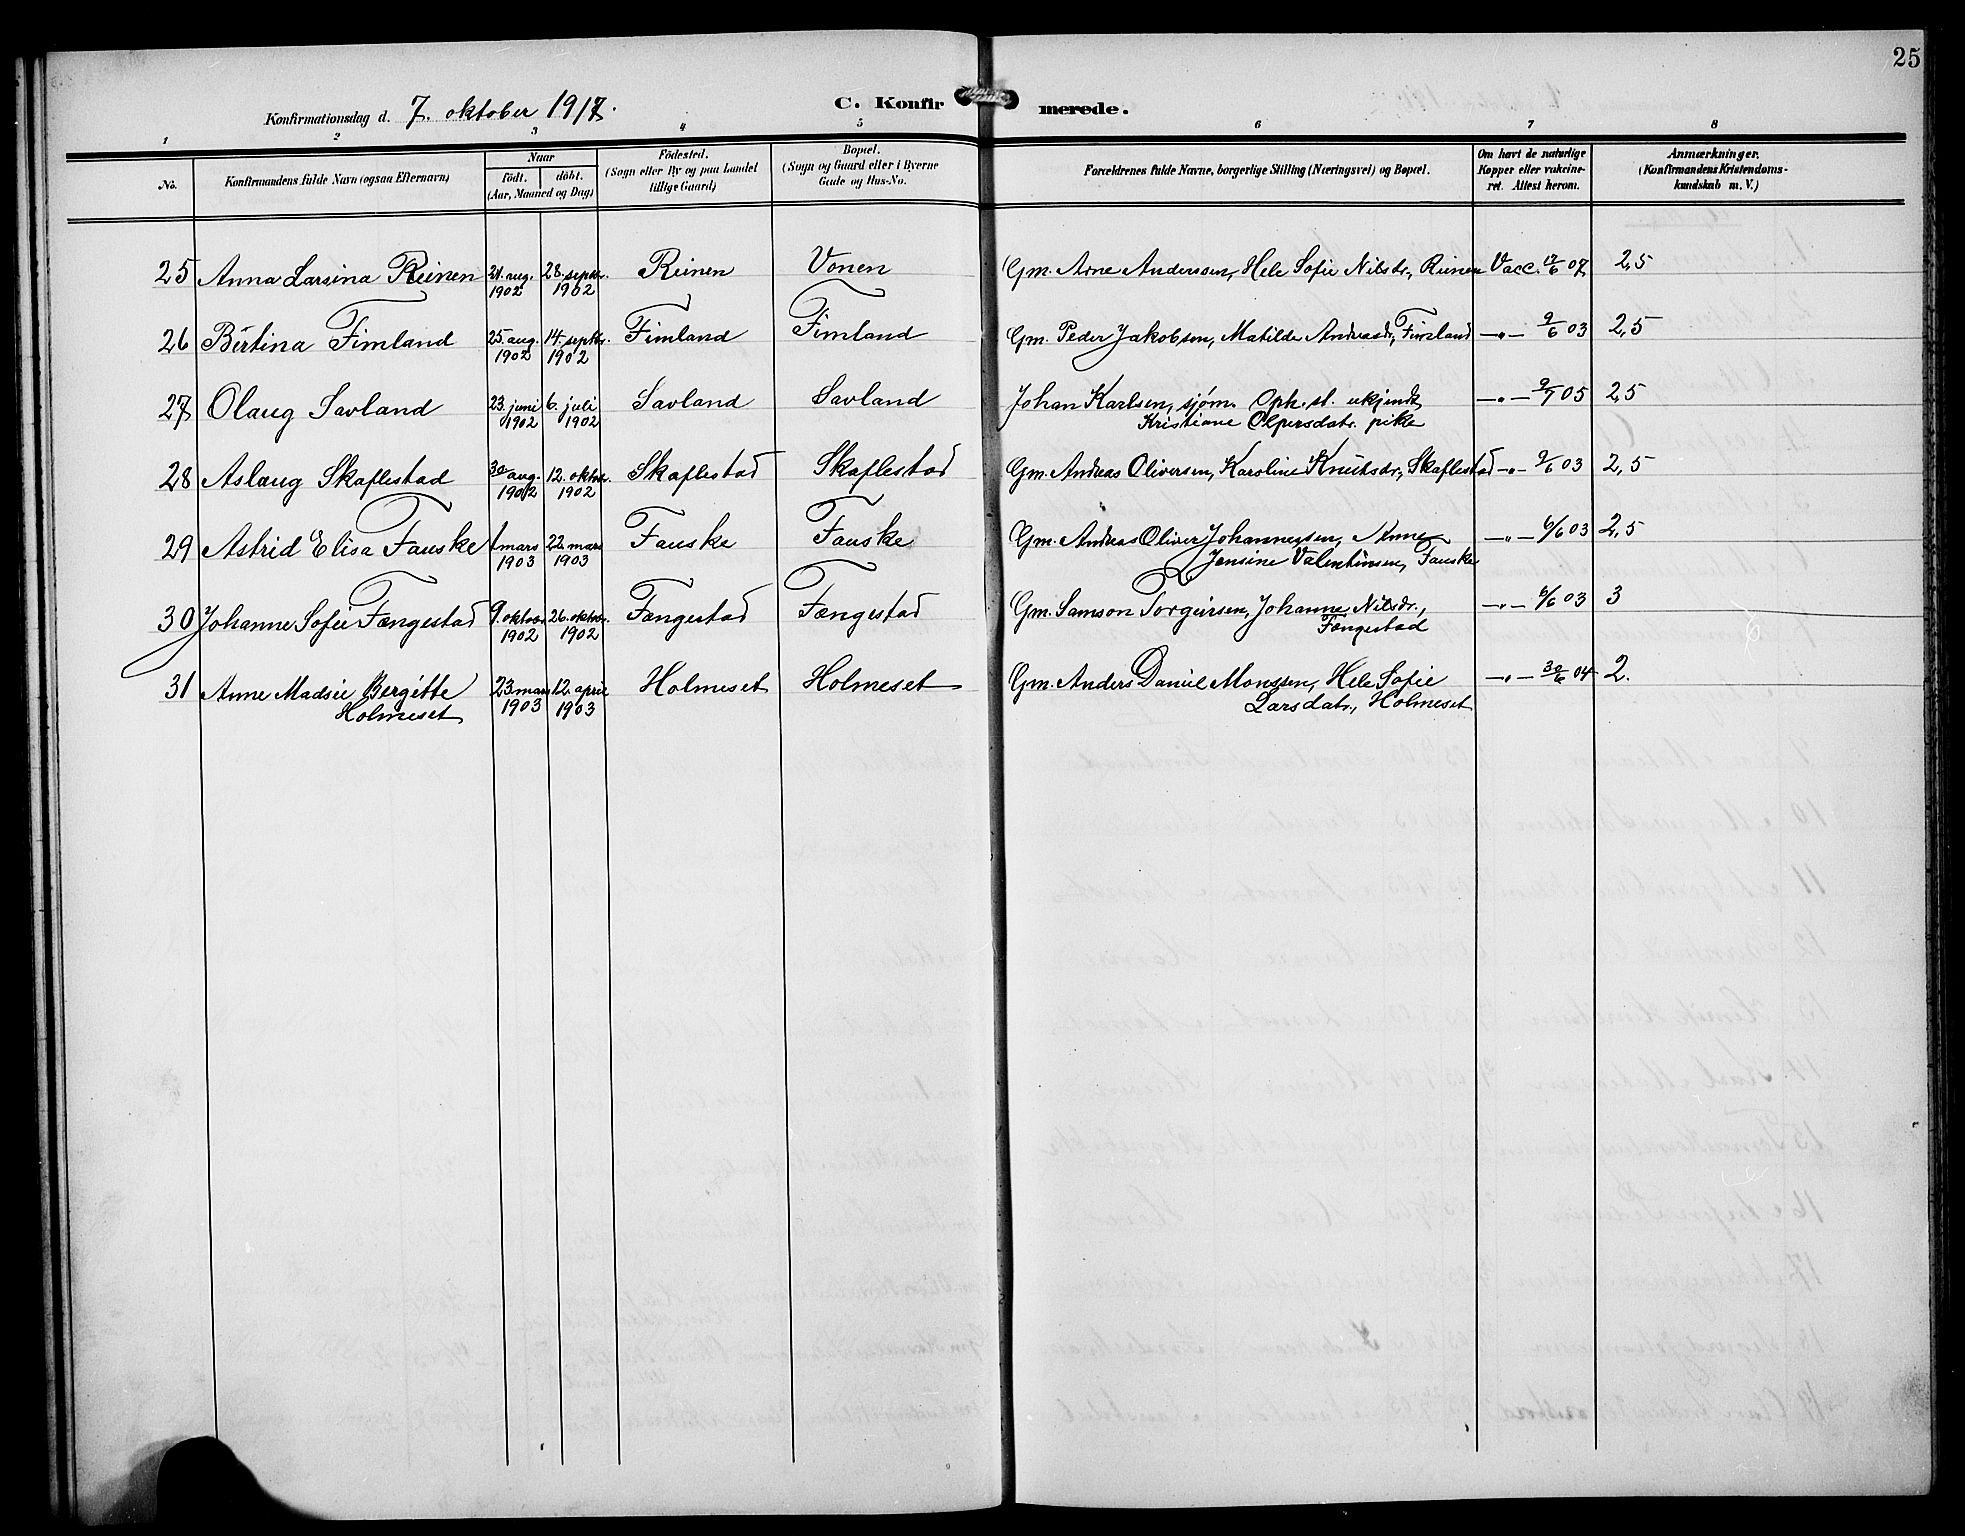 25
Konfirmationsdag d. 7. oktober 1917.
C. Konfirmerede.
1 2 3 4 5 6 7 8
No.
Konfirmandens fulde Navn (ogsaa Efternavn)
Naar
født. døbt.
(Aar, Maaned og Dag)
Fødested.
(Sogn eller By og paa Landet
tillige Gaard)
Bopæl.
(Sogn og Gaard eller i Byerne
Gade og Hus-No.
Forældrenes fulde Navne, borgerlige Stilling (Næringsvei) og Bopæl.
Om havt de naturlige
Kopper eller vakcine-
ret. Attest herom.
Anmærkninger.
(Konfirmandens Kristendoms-
kundskab m. V.)
25 Anna Larsina Reinen 21. aug. 28. septbr. Reinen Vonen Gm. Arne Anderssen, Hele Sofie Nilsdr., Reinen Vacc. 12/6 07 2,5
1902 1902
26 Bertina Fimland 25. aug. 14. septbr. Fimland Fimland Gm. Peder Jakobsen, Matilde Andreasdr., Fimland —"— 9/6 03 2,5
1902 1902
27 Olaug Savland 23. juni 6. juli Savland Savland Johan Karlsen, sjøm. Oph. st. ukjendt, —"— 9/7 05 2,5
1902 1902 Kristiane Olpersdatr. pike
28 Aslaug Skaflestad 30 aug. 12. oktbr. Skaflestad Skaflestad Gm. Andreas Oliversen, Karoline Knutsdr., Skaflestad —"— 9/6 03 2,5
1902 1902
29 Astrid Elisa Fauske 1 mars 22. mars Fauske Fauske Gm. Andreas Oliver Johannessen, Anne —"— 6/6 03 2,5
1903 1903 Jensine Valentinsen, Fauske
30 Johanne Sofie Fængestad 9. oktobr 26. oktbr. Fængestad Fængestad Gm. Samson Torgeirsen, Johanne Nilsdr., —"— 6/6 03 3
1902 1902 Fængestad
31 Anne Madsie Bergitte 23. mars 12. april Holmeset Holmeset Gm. Anders Daniel Monssen, Hele Sofie —"— 30/6 04 2.
Holmeset 1903 1903 Larsdatr., Holmeset